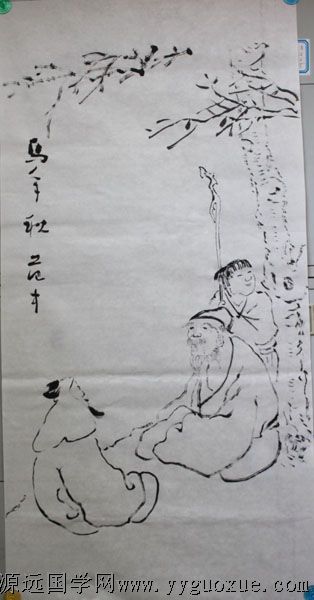 馬年秋
源远国学网www.yyguoxue.com